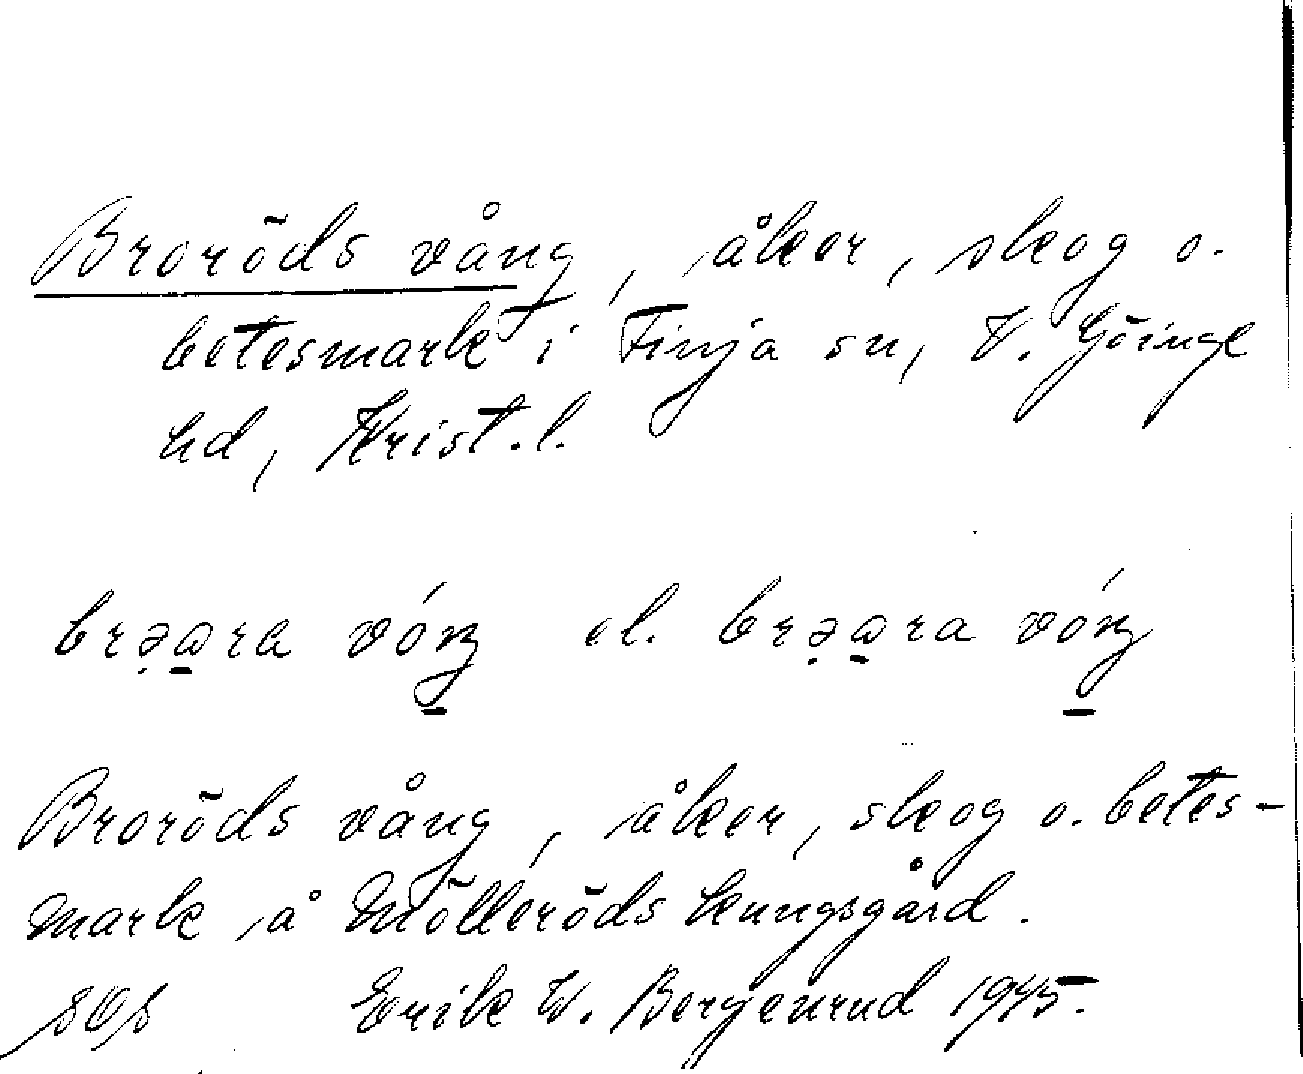 Broröds vång, åker, skog o.
betesmark i Finja sn, V. Göinge
hd, Krist. l.
el.
Broröds vång, åker, skog o. betes-
mark å Mölleröds kungsgård.
Erik W. Bergenrud 1945.